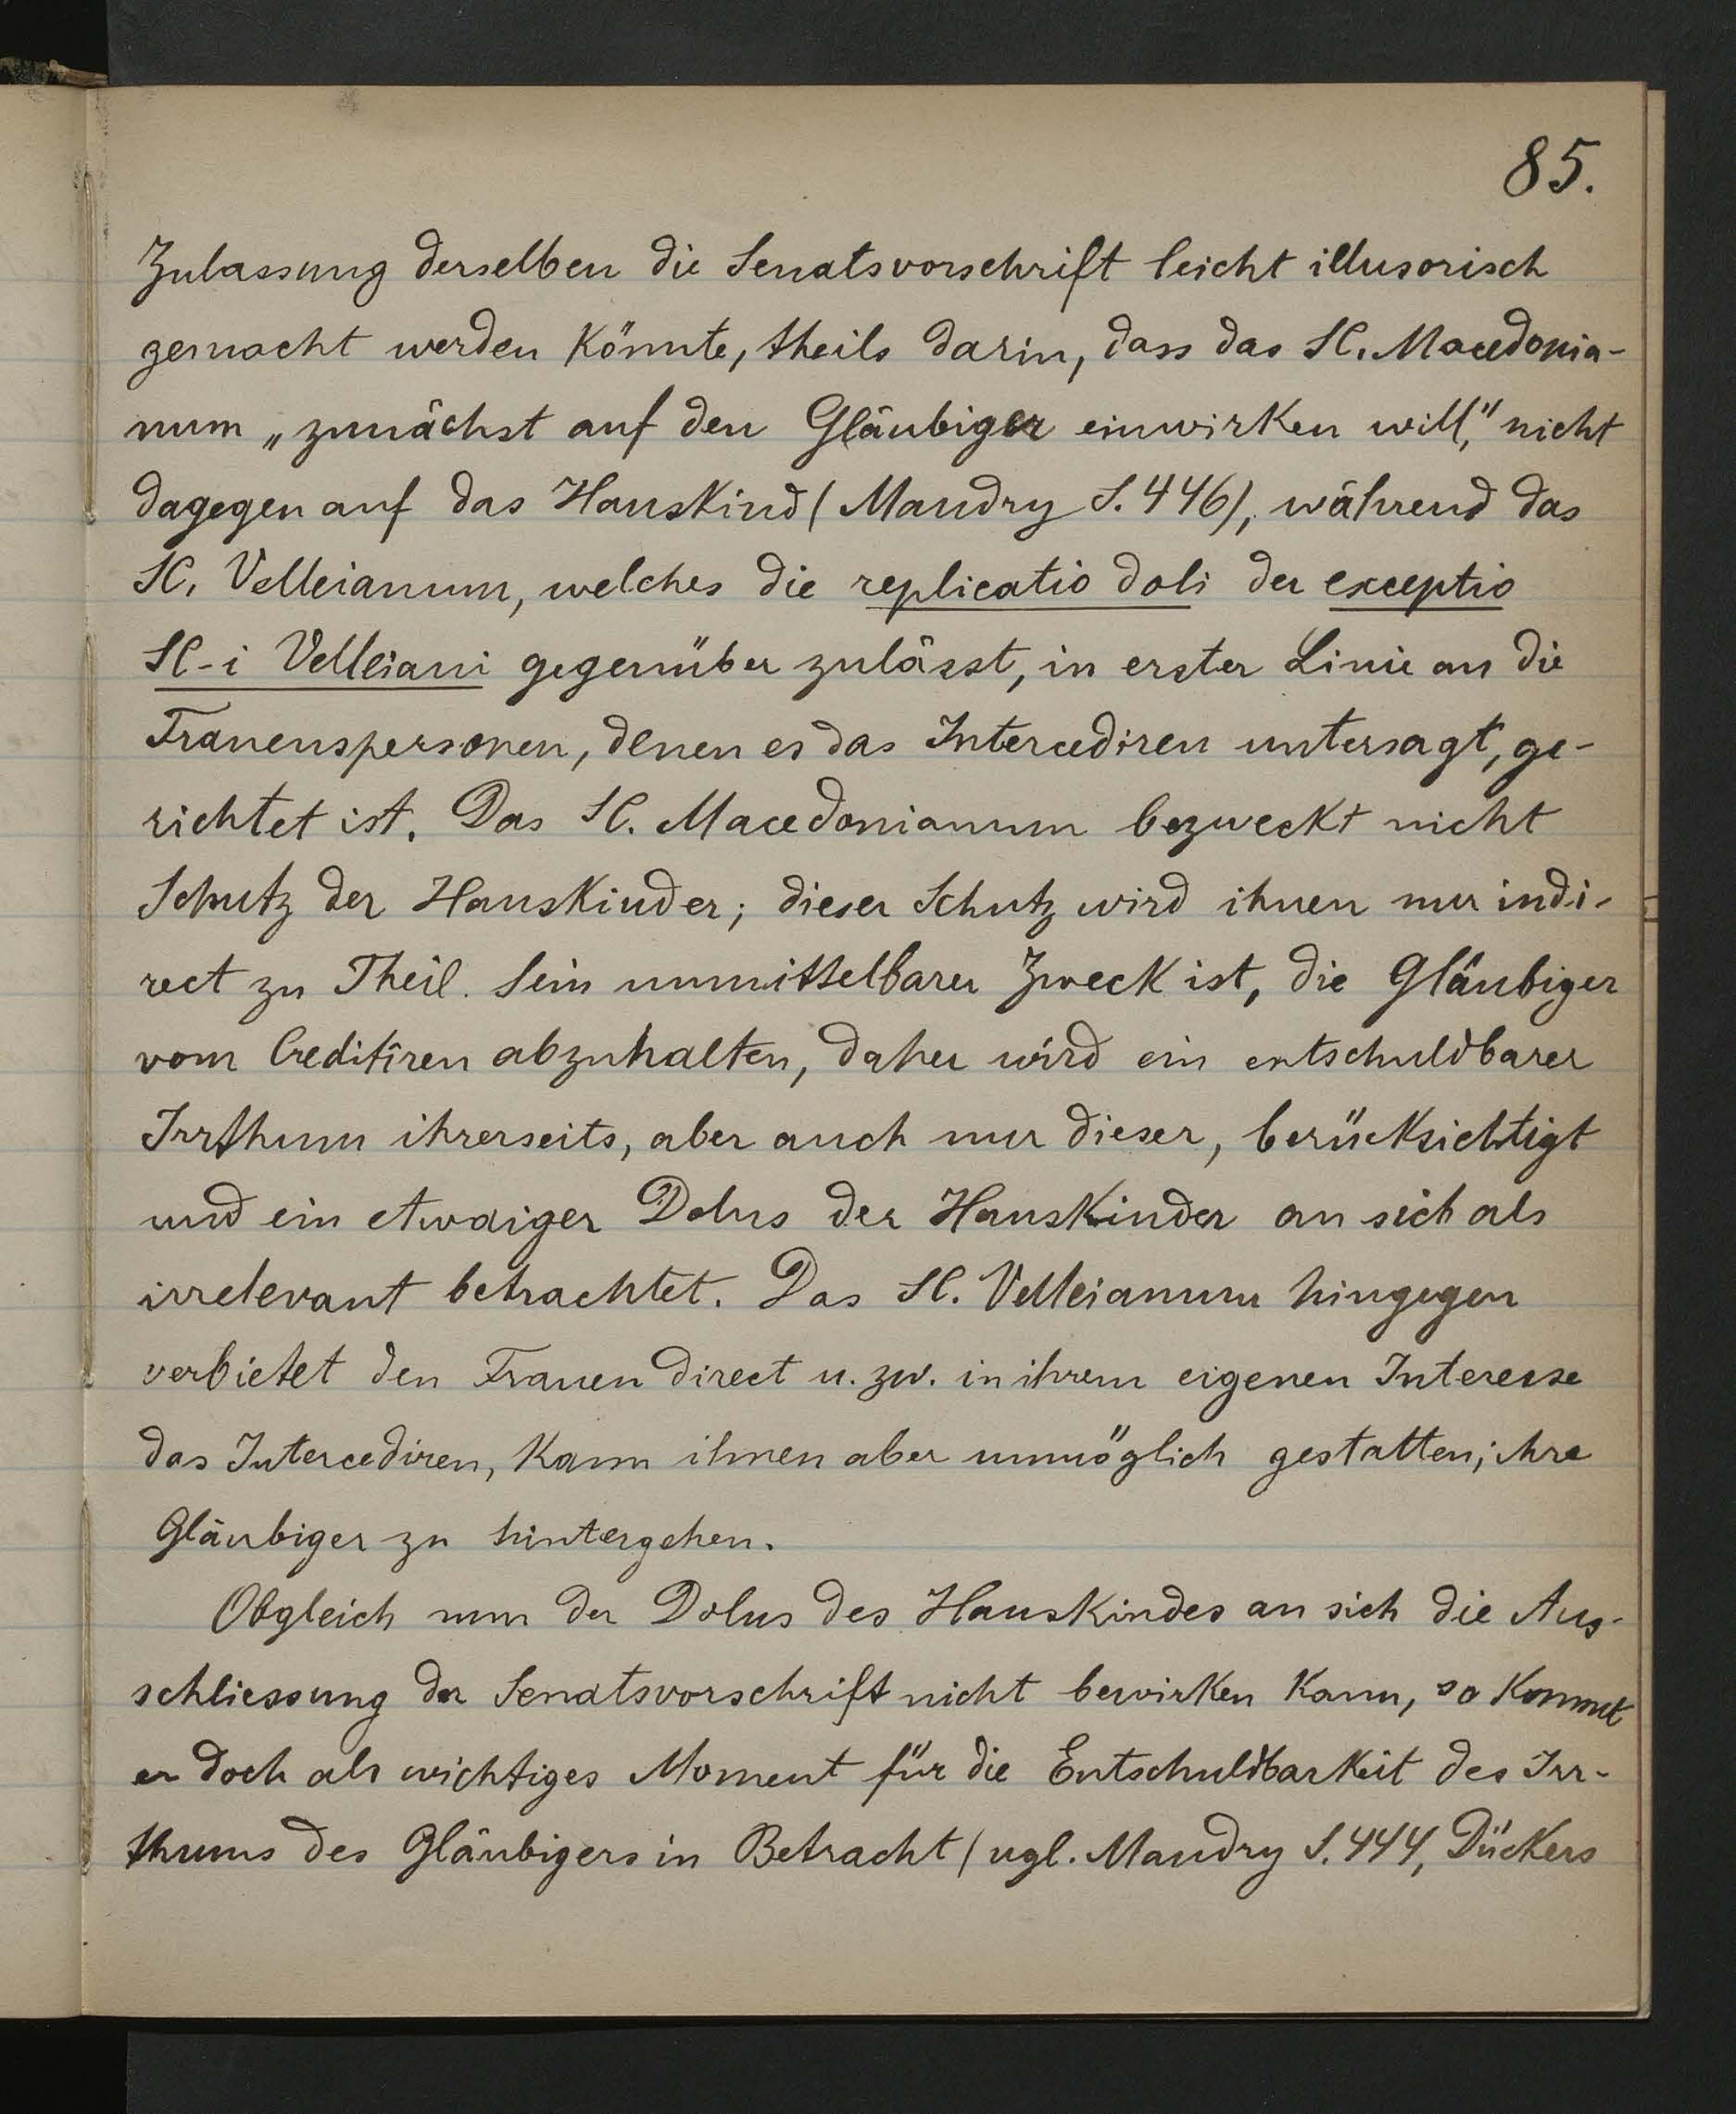 85.
Zulassung derselben die Senatsvorschrift leicht illusorisch
gemacht werden könnte, theils darin, dass das SC. Macedonia-
num „zunächst auf den Gläubiger einwirken will," nicht
dagegen auf das Hauskind (Mandry S. 446), während das
SC. Velleianum, welches die replicatio doli der exceptio
SC-i Velleiani gegenüber zulässt, in erster Linie an die
Frauenspersonen, denen es das Intercediren untersagt, ge-
richtet ist. Das SC. Macedonianum bezweckt nicht
Schutz der Hauskinder; dieser Schutz wird ihnen nur indi-
rect zu Theil. Sein unmittelbarer Zweck ist, die Gläubiger
vom Creditiren abzuhalten, daher wird ein entschuldbarer
Irrthum ihrerseits, aber auch nur dieser, berücksichtigt
und ein etwaiger Dolus der Hauskinder an sich als
irrelevant betrachtet. Das SC. Velleianum hingegen
verbietet den Frauen direct u. zw. in ihrem eigenen Interesse
das Intercediren, kann ihnen aber unmöglich gestatten, ihre
Gläubiger zu hintergehen.
Obgleich nun der Dolus des Hauskindes an sich die Aus-
schliessung der Senatsvorschrift nicht bewirken kann, so kommt
er doch als wichtiges Moment für die Entschuldbarkeit des Irr-
thums des Gläubigers in Betracht (vgl. Mandry S. 444, Dückers